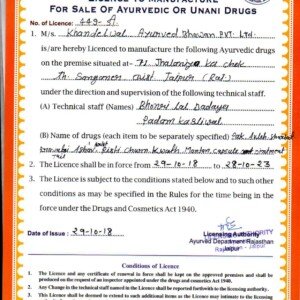 LICENCE TO MANUFACTURE
FOR SALE OF AYURVEDIC OR UNANI DRUGS
No. of Licence: 449-
1. M/s. Khandelwal Ayurved Bhawan PVT. LTD.
is/are hereby Licenced to manufacture the following Ayurvedic drugs
on the premise situated at Jhalaniyo ka
Dist. Jaipur (Raj)
under the direction and supervision of the following technical staff.
(A) Technical staff (Names) Bhonri lal Dadaya
Padam Kasliwal
(B) Name of drugs (each item to be separately specified)
Churn, Kwath, Manjan, Capsule, ointment
2. The Licence shall be in force from 29-10-18 to 28-10-23
3. The Licence is subject to the conditions stated below and to such other
conditions as may be specified in the Rules for the time being in the
force under the Drugs and Cosmetics Act 1940.
Date of Issue : 29-10-18
Licensing Authority
Ayurved Department Rajasthan
Jaipur
Conditions of Licence
1. The Licence and any certificate of renewal in force shall be kept on the approved premises and shall
be produced at the request of an inspector appointed under the drugs and cosmetics Act 1940.
2. Any Change in the technical staff named in the Licence shall be reported forthwith to the licensing authority.
3. The Licence shall be deemed to extend to such additional items as the Licencee may intimate to the licensing